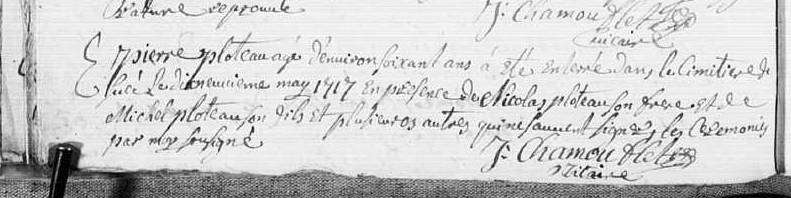 rature reprouvée
J. Chamouillet
vicaire
pierre ploteau agé d'environ soixant ans á eté enterré dans le Cimitiere de
Lucé le dixneuvieme may 1717 en présence de Nicolas ploteau son frere et de
Michel ploteau son fils et plusieurs autres qui ne sauvent signer, les Ceremonies
par moy sousigné
J. Chamouillet
vicaire